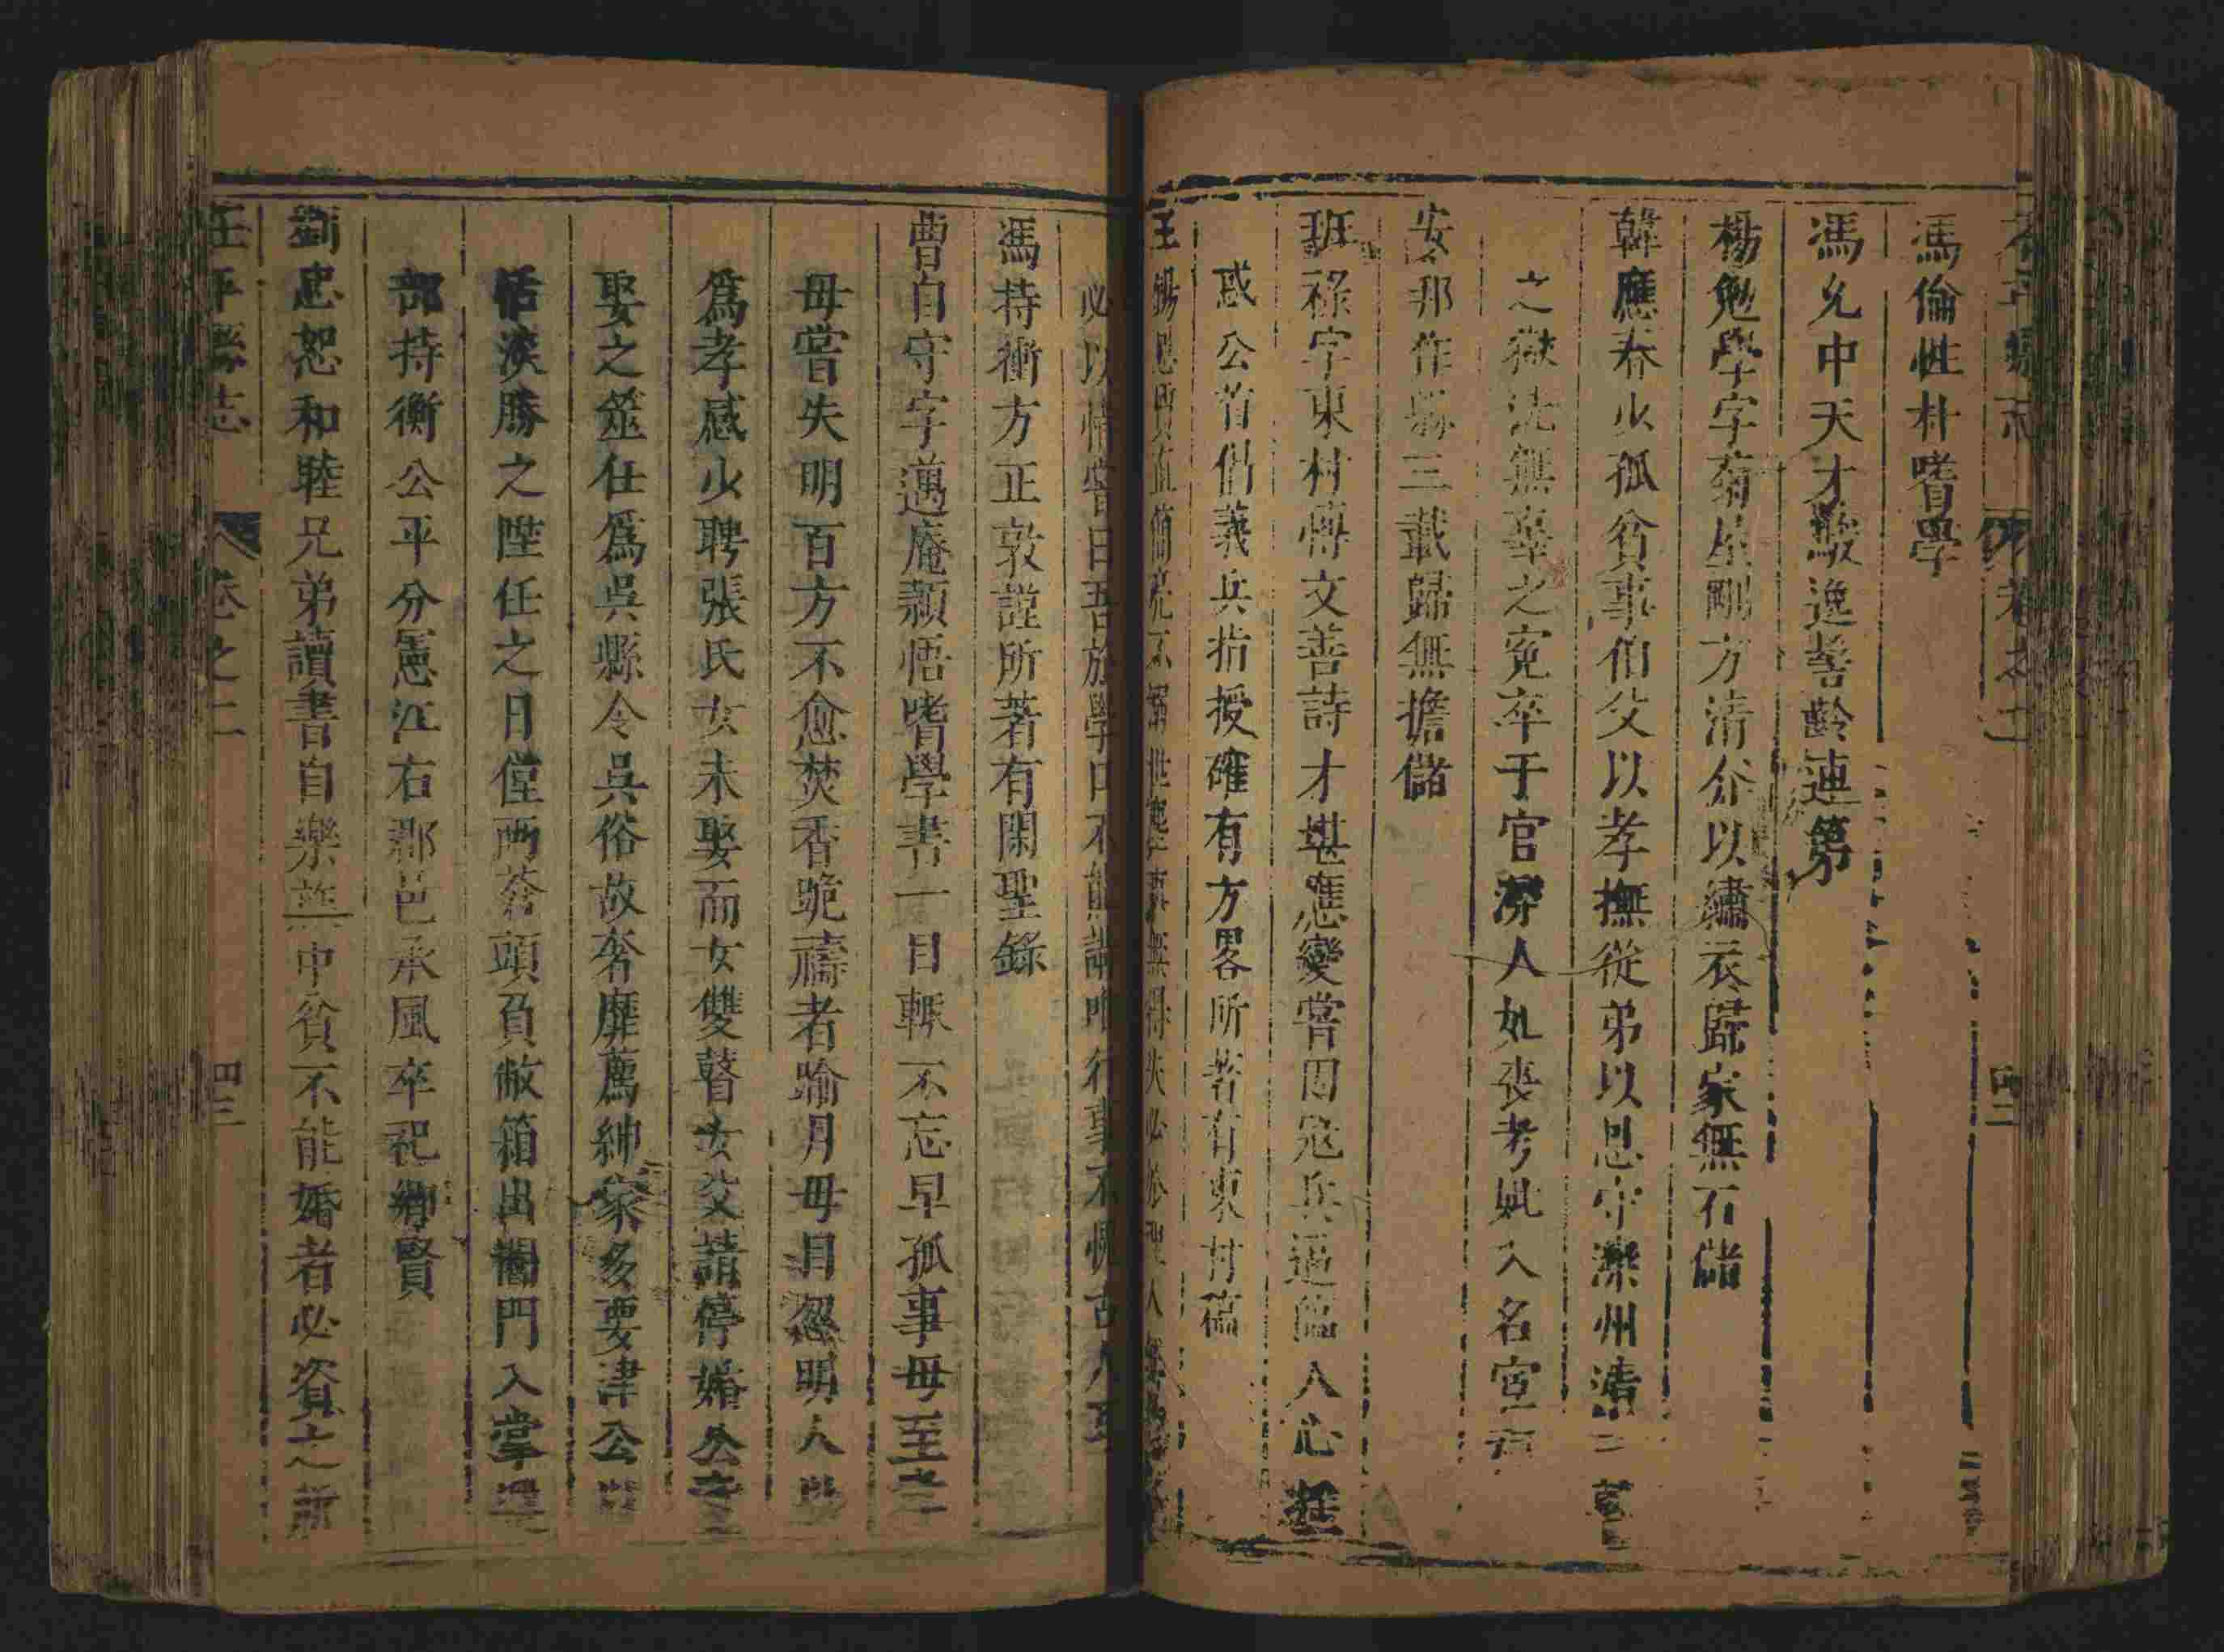 卷之二
馮倫性朴嗜學
馮允中天才駿逸髫齡連第
楊勉學字菊星剛方清介以繡衣歸家無石儲
韓應春少孤貧事伯父以孝撫從弟以恩守灤州清
之獄洗無辜之寃卒于官灤人如喪考妣入名宦
安邦作縣三載歸無擔儲
班祿字東村博文善詩才堪應變嘗因寇兵逼臨人心
惑公首倡義兵指授確有方畧所著有東村稿
王錫
必以 嘗曰吾於學口不能講
馮持衡方正敦謹所著有閑聖錄
曹自守字邁庵穎悟嗜學書一目輒不忘早孤事毋至孝
毋嘗失明百方不愈焚香跪禱者踰月毋目忽明人
爲孝感少聘張氏女未娶而女雙瞽女父請停婚公
娶之筮仕爲吳縣令吳俗故奢靡薦紳家多要津公
恬淡勝之陞任之日僅兩蒼頭負敝箱出閶門入掌
部持衡公平分憲江右郡邑承風卒祀鄉賢
劉忠恕和睦兄弟讀書自樂族中貧不能婚者必資之
茌平縣志 卷之二 四三